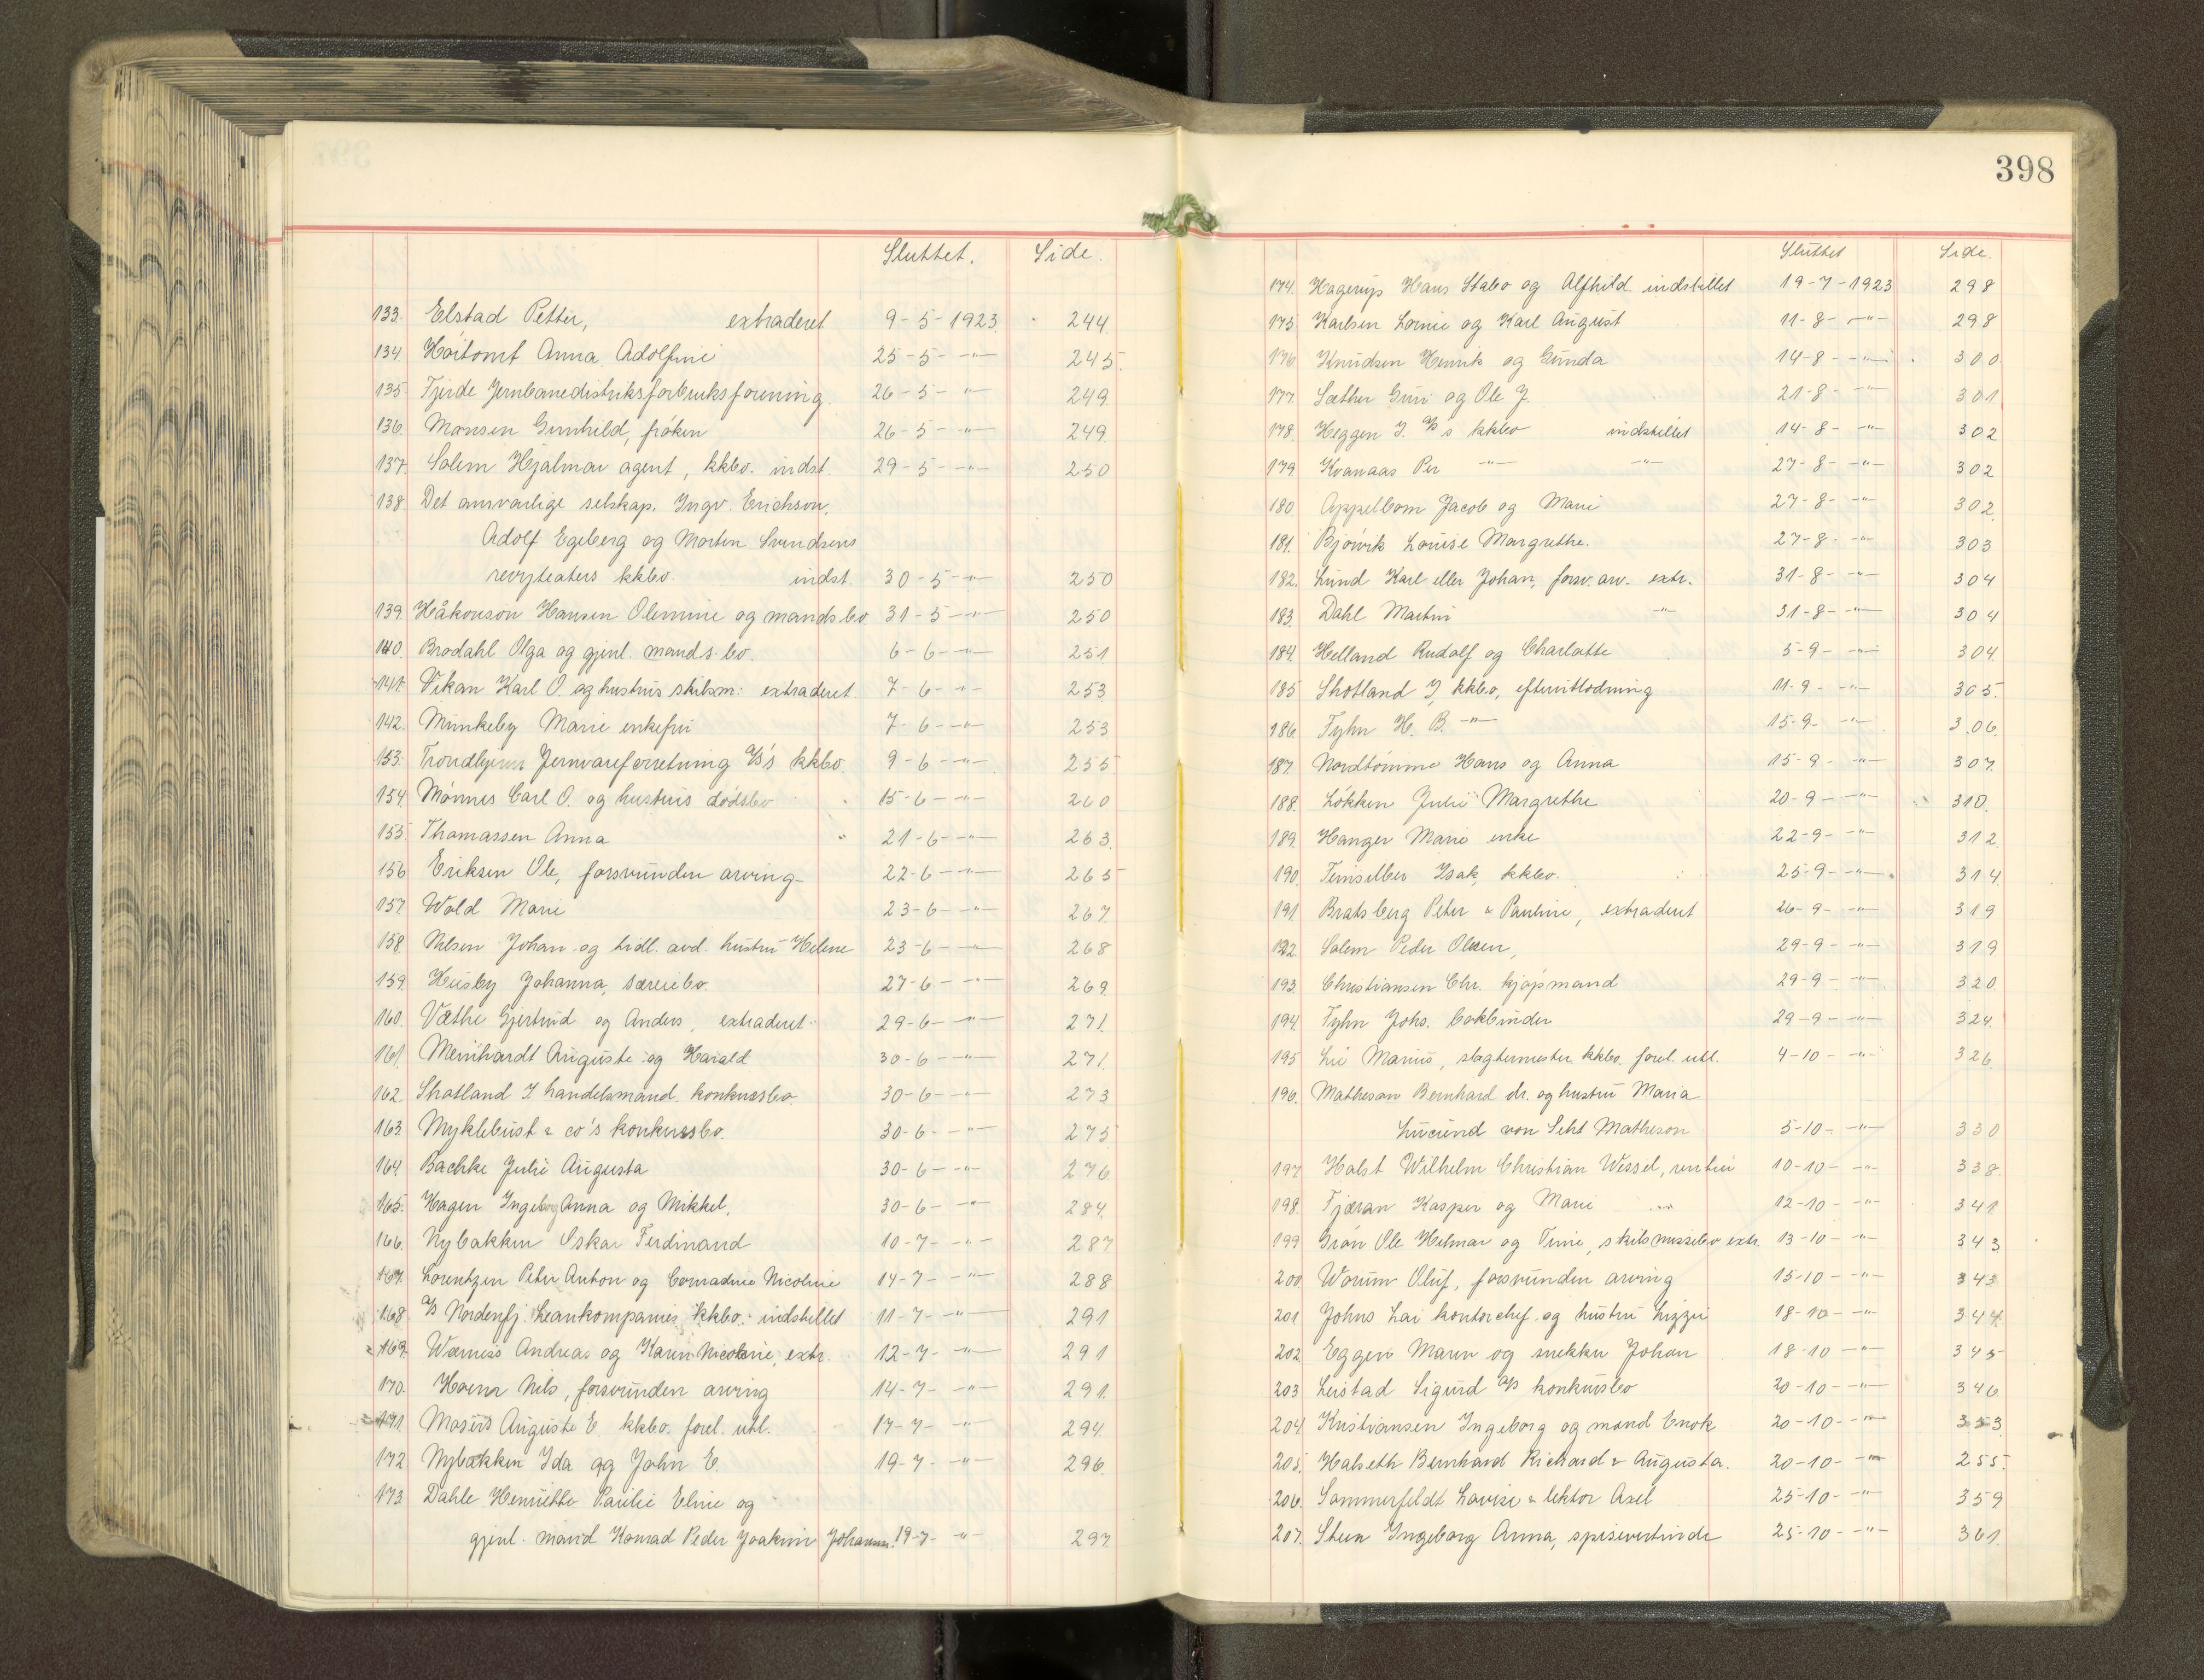 398
Sluttet. Side.
133. Elstad Petter, extraderet 9-5-1923. 244.
134. Høitomt Anna Adolfine 25-5- -"- 245.
135. Fjerde Jernbanedistriksforbruksforening. 26-5- -"- 249.
136. Monsen Gunhild, frøken 26-5- -"- 249
137. Solem Hjalmar agent, kkbo. indst. 29-5- -"- 250
138. Det ansvarlige selskap. Ingv. Erichson,
Adolf Egeberg og Morten Svendsens
revyteaters kkbo. indst. 30-5- -"- 250
139. Håkonson Hansen Olemine og mands bo 31-5- -"- 250
140. Brodahl Olga og gjenl. mands bo. 6-6- -"- 251
141. Vikan Karl O. og hustrus skilsm: extraderet. 7-6- -"- 253
142. Munkeby Marie enkefru 7-6- -"- 253
153. Trondhjems Jernvareforretning A/S's kkbo. 9-6- -"- 255
154. Mønnes Carl O. og hustrus dødsbo 15-6- -"- 260
155. Thomassen Anna 21-6- -"- 263.
156 Eriksen Ole, forsvunden arving 22-6- -"- 265
157. Wold Marie 23-6- -"- 267.
158. Nilsen Johan og tidl. avd. hustru Helene 23-6- -"- 268
159. Husby Johanna, særeiebo. 27-6- -"- 269.
160. Væthe Gjertrud og Anders, extraderet 29-6- -"- 271.
161. Meinhardt Auguste og Harald 30-6- -"- 271.
162. Shotland I handelsmand. konkursbo. 30-6- -"- 273
163. Myklebust & co's konkursbo. 30-6- -"- 275
164. Bachke Julie Augusta 30-6- -"- 276.
165. Hagen Ingeborg Anna og Mikkel. 30-6- -"- 284.
166. Nybakken Oskar Ferdinand 10-7- -"- 287
167. Lorentzen Peter Anton og Conradine Nicoline 14-7- -"- 288
168. A/S Nordenfj. Leankompanies kkbo. indstillet 11-7- -"- 291
169. Werness Andreas og Karen Nicoline, extr. 12-7- -"- 291
170. Hoem Nils, forsvunden arving 14-7- -"- 291.
171. Mosers Auguste E. kkbo. forel. utl. 17-7- -"- 294.
172. Nybakken Ida og John E. 19-7- -"- 296.
173. Dahle Henriette Paulie Eline og
gjenl. mand Konrad Peder Joakim Johannes. 19-7- -"- 297.
Sluttet Side.
174. Hagerup Hans Stabo og Alfhild indstillet 19-7-1923 298
175. Karlsen Lovnie og Karl August 11-8- -"- 298
176. Knudsen Henrik og Gunda 14-8- -"- 300
177. Sæther Guri og Ole J. 21-8- -"- 301
178. Heggen J. A/S's kkbo indstillet 14-8- -"- 302
179. Kvanaas Per -"- -"- 27-8- -"- 302
180. Appelbom Jacob og Marie 27-8- -"- 302.
181. Bjørvik Louise Margrethe. 27-8- -"- 303
182. Lund Karl eller Johan, forsv. arv. extr. 31-8- -"- 304
183. Dahl Martin -"- 31-8- -"- 304
184. Helland Rudolf og Charlotte 5-9- -"- 304.
185 Shotland J, kkbo, efterutlodning 11-9- -"- 305.
186. Fyhn H. B. -"- 15-9- -"- 306.
187. Nordtømme Hans og Anna 15-9- -"- 307.
188. Løkken Julie Margrethe 20-9- -"- 310.
189. Hanger Marie enke 22-9- -"- 312.
190. Feinsilber Isak, kkbo. 25-9- -"- 314.
191 Bratsberg Peter & Pauline, extraderet 26-9- -"- 319
192. Solem Peder Olsen, 29-9- -"- 319
193. Christiansen Chr. kjøpmand 29-9- -"- 320
194. Fyhn Johs. bokbinder 29-9- -"- 324.
195 Lie Marius, slagtermester kkbo. forel. utl. 4-10- -"- 326.
196. Matheson Bernhard dr. og hustru Maria
Lucinde von Seht Matheson 5-10- -"- 330
197. Halst Wilhelm Christian Wessel, rentier 10-10- -"- 338.
198. Fjæran Kasper og Marie 12-10- -"- 341.
199 Grøn Ole Helmar og Tine, skilsmissebo extr. 13-10- -"- 343
200. Worum Oluf, forsvunden arving 15-10- -"- 343
201 Johns Lai kontorchef og hustru Lizzie 18-10- -"- 344.
202. Eggen Maren og snekker Johan 18-10- -"- 345
203 Leistad Sigurd A/S konkursbo 20-10- -"- 346
204. Kristiansen Ingeborg og mand Enok 20-10- -"- 353.
205. Halseth Bernhard Richard & Augusta. 20-10- -"- 255.
206. Sommerfeldt Lovise & lektor Axel 25-10- -"- 359
207. Steen Ingeborg Anna, spisevertinde 25-10- -"- 361.